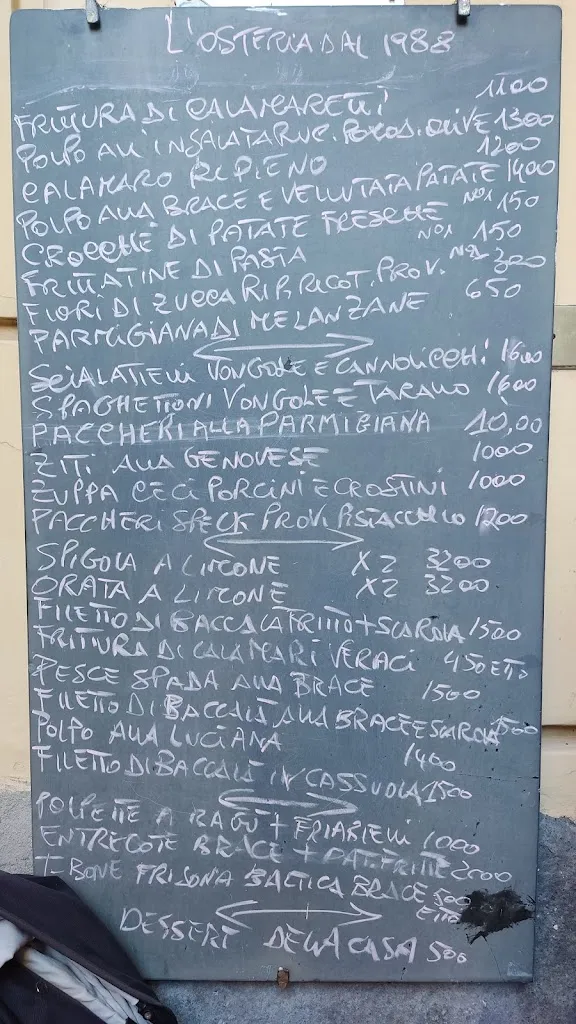 L'OSTERIA DAL 1988
FRITTURA DI CALAMARETTI 1100
POLPO ALL'INSALATA RUC. POMOD. OLIVE 1300
CALAMARO RIPIENO 1200
POLPO ALLA BRACE E VELLUTATA PATATE 1400
CROCCHE' DI PATATE FRESCHE N°1 150
FRITTATINE DI PASTA N°1 150
FIORI DI ZUCCA RIP. RICOT. PROV. N°1 300
PARMIGIANA DI MELANZANE 650
SCIALATIELLI VONGOLE E CANNOLICCHI 1600
SPAGHETTONI VONGOLE E TARALLO 1600
PACCHERI ALLA PARMIGIANA 10,00
ZITI ALLA GENOVESE 1000
ZUPPA CECI PORCINI E CROSTINI 1000
PACCHERI SPECK PROV. PISTACCHIO 1200
SPIGOLA A LIMONE X2 3200
ORATA A LIMONE X2 3200
FILETTO DI BACCALA FRITTO + SCAROLA 1500
FRITTURA DI CALAMARI VERACI 450 ETTO
PESCE SPADA ALLA BRACE 1500
FILETTO DI BACCALÀ ALLA BRACE E SCAROLA 1500
POLPO ALLA LUCIANA 1400
FILETTO DI BACCALÀ IN CASSUOLA 1500
POLPETTE A RAGÙ + FRIARIELLI 1000
ENTRECOTE BRACE + PAT. FRITTE 2000
T-BONE FRISONA BALTICA BRACE 500
ETTO
DESSERT DELLA CASA 500